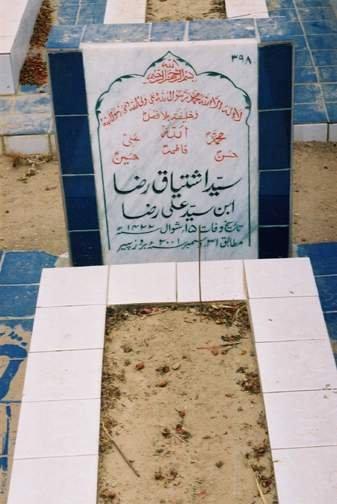 ۳۹۸
الله
بسم الله الرحمن الرحیم
لا اله الا الله محمد رسول الله علی ولی الله وصی رسول الله
وخلیفته بلا فصل
محمد الله علی
حسن فاطمه حسین
سید اشتیاق رضا
ابن سید علی رضا
تاریخ وفات ۱۵ شوال ۱۴۲۲ھ
مطابق ۳۱ دسمبر ۲۰۰۱ء بروز پیر